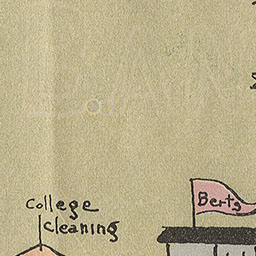 College
Cleaning
Berts